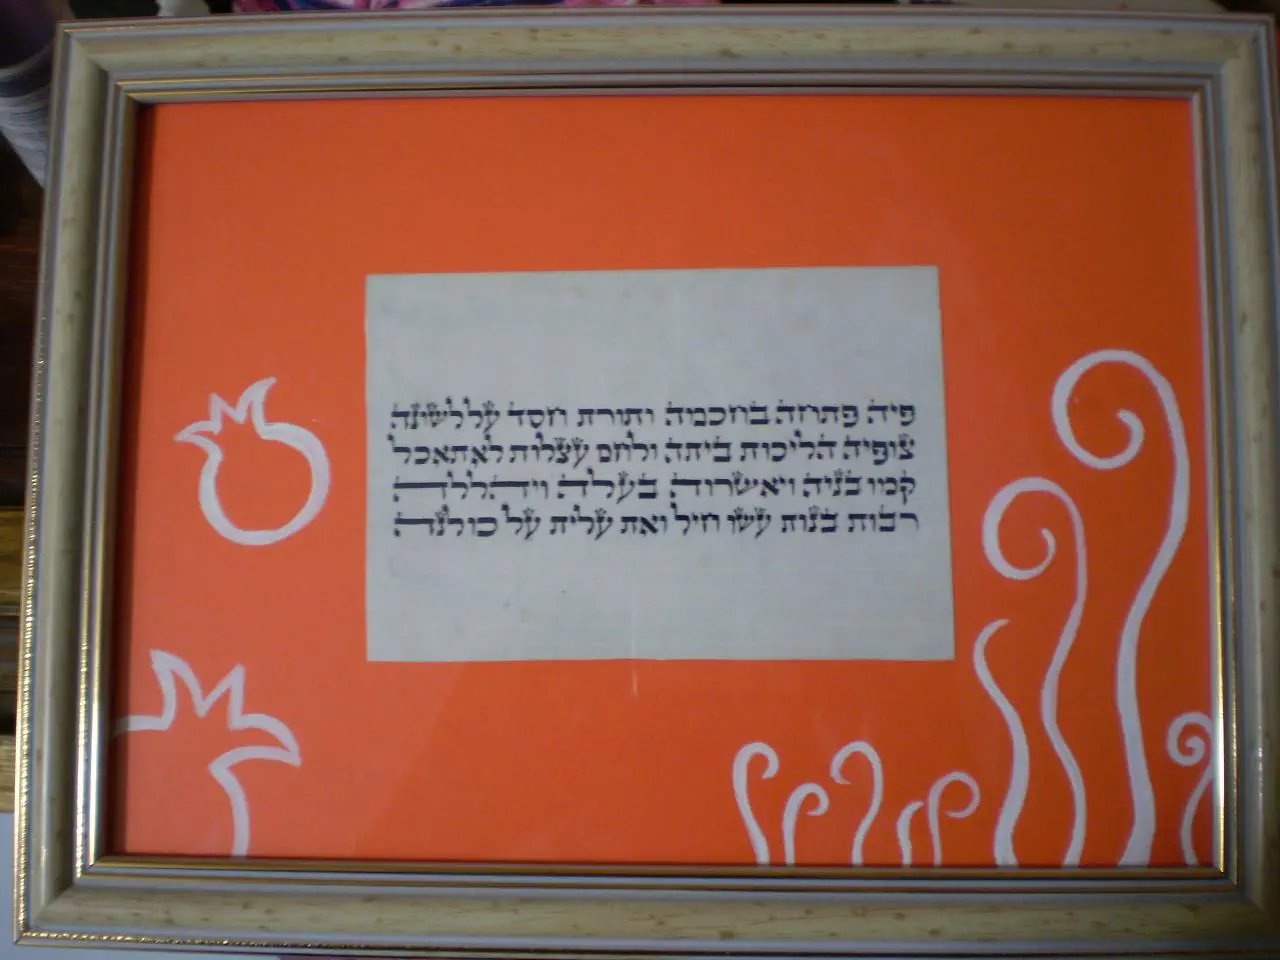 פיה פתחה בחכמה ותורת חסד על לשונה
צופיה הליכות ביתה ולחם עצלות לא תאכל
קמו בניה ויאשרוה בעלה ויהללה
רבות בנות עשו חיל ואת עלית על כולנה